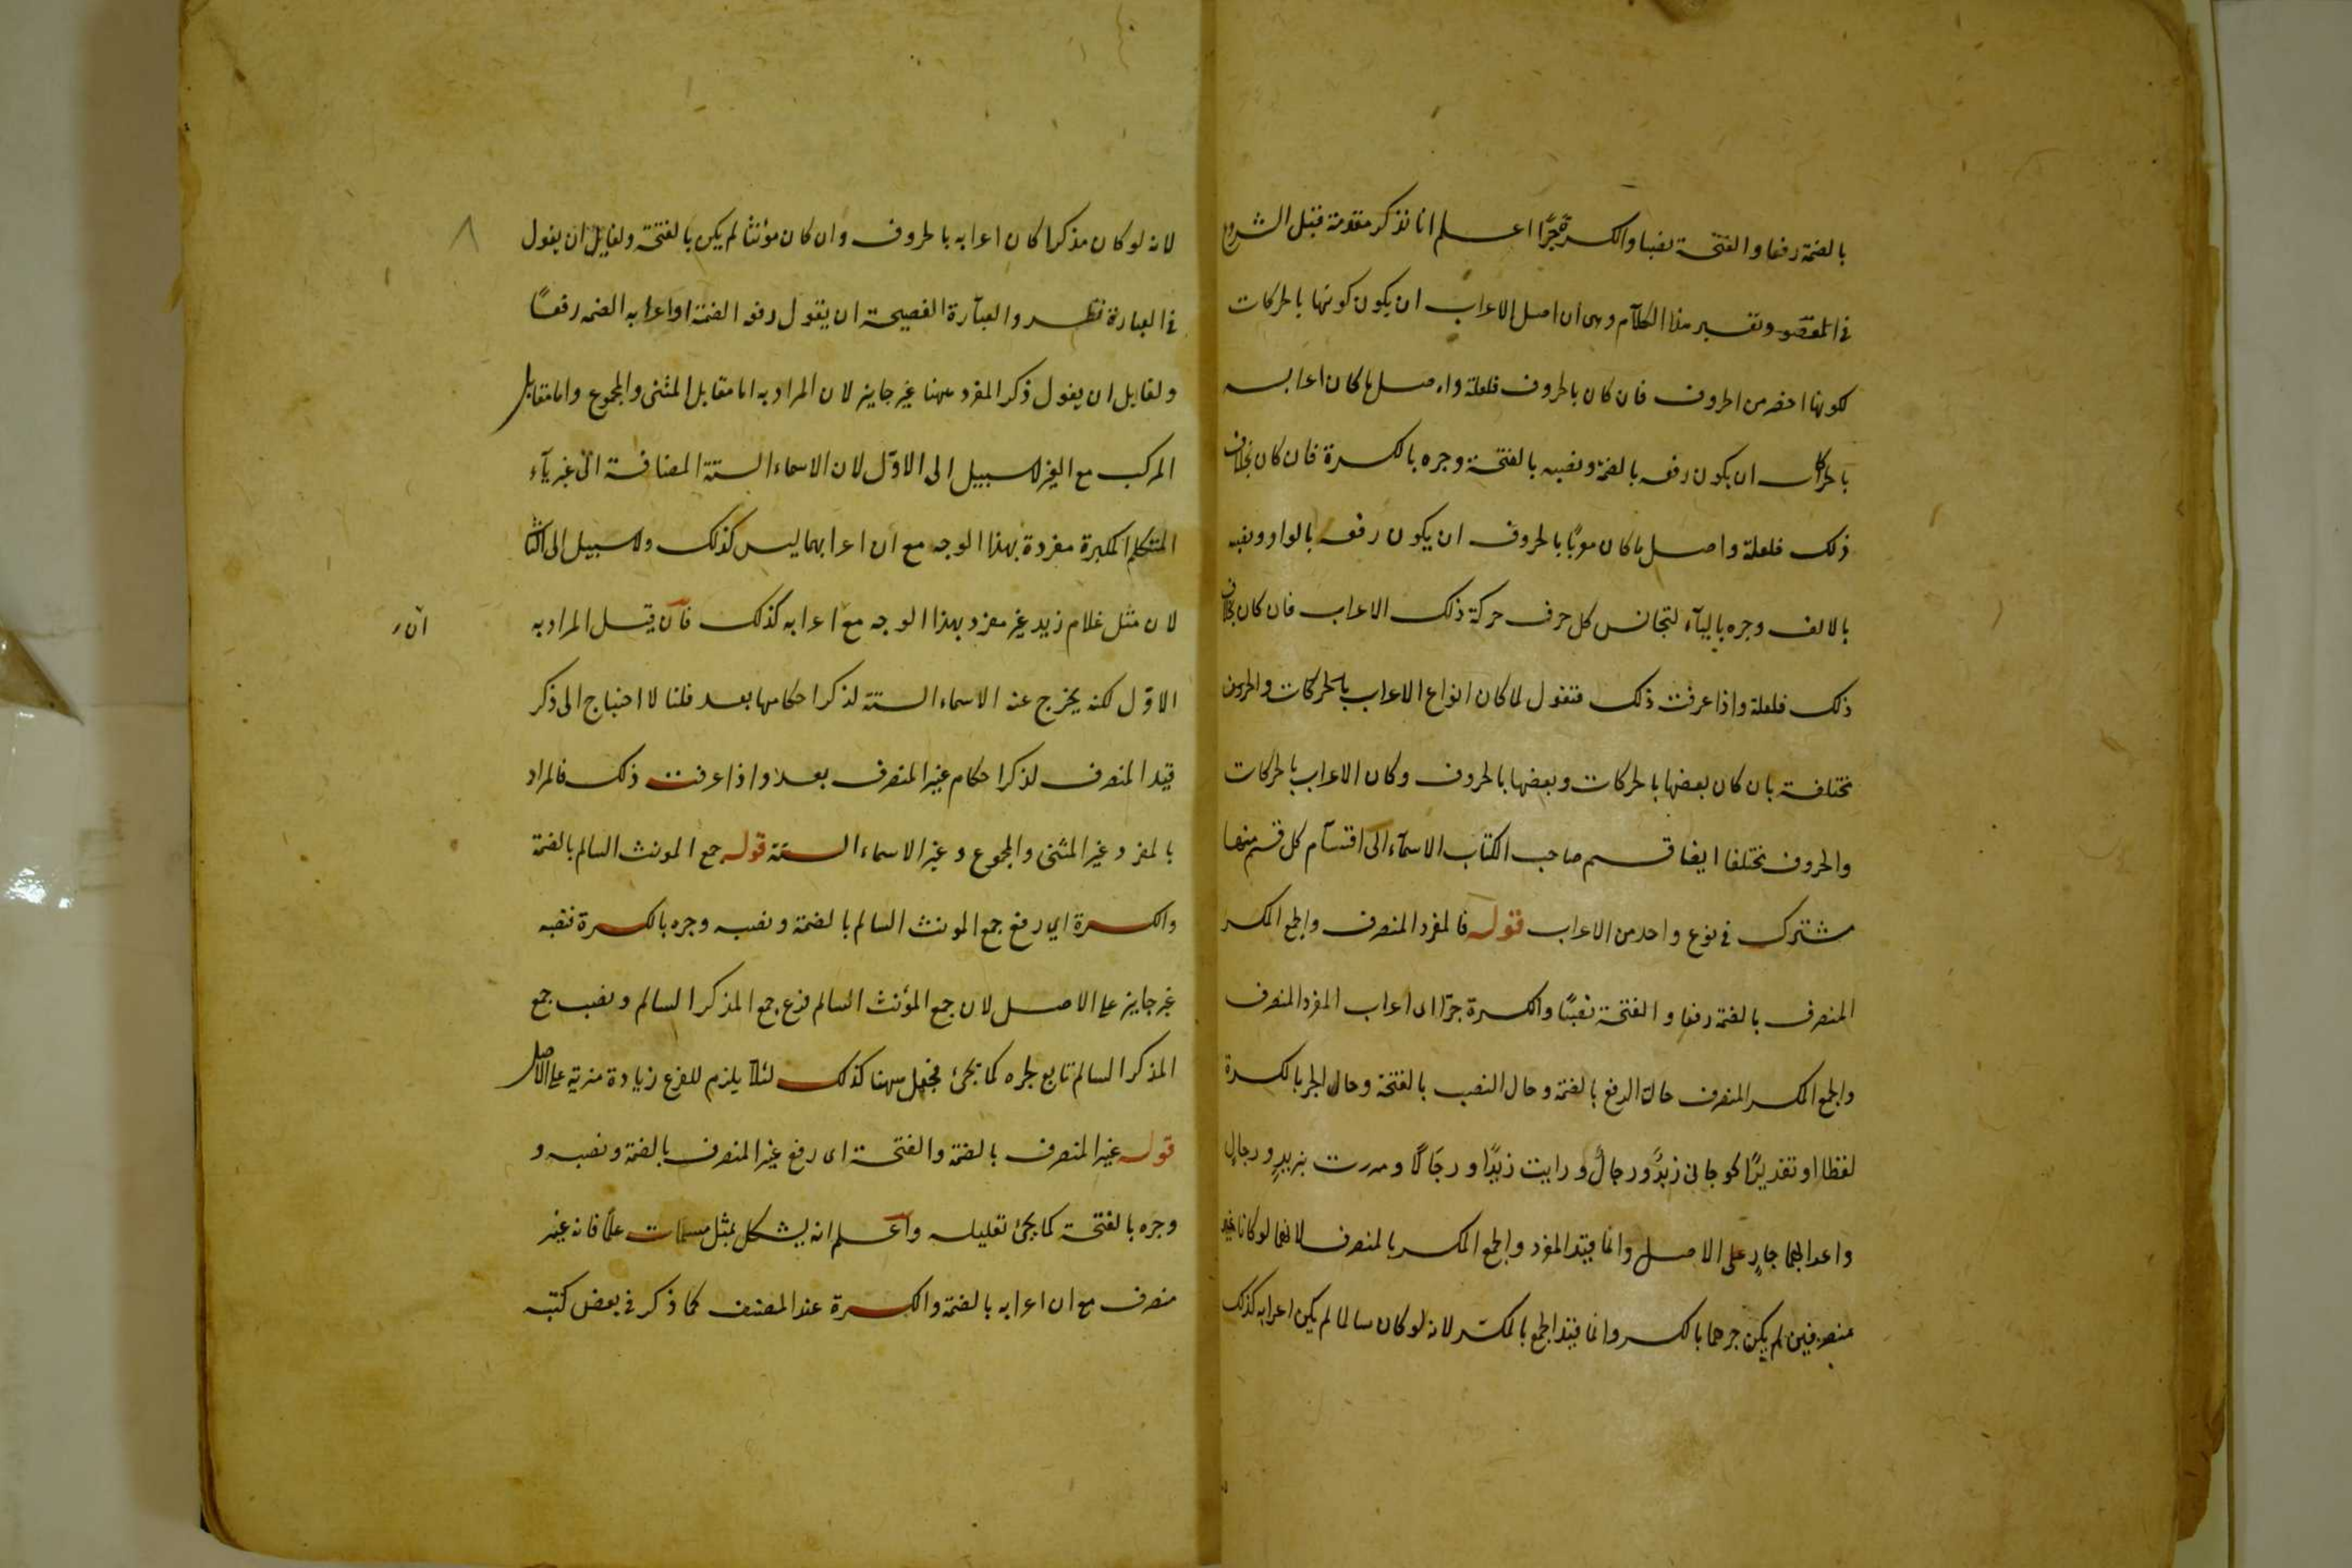 بالضمة رفعا والفتحة نصبا والكسرة جرًّا اعلم انا نذكر مقدمة قبل الشروع
في المقصود وتفسير هذا الكلام وهي ان اصل الاعراب ان يكون كونها بالحركات
لكونها اخف من الحروف فان كان بالحروف فلعلة واصل ما كان اعرابه
بالحركات ان يكون رفعه بالضمة ونصبه بالفتحة وجره بالكسرة فان كان بخلاف
ذلك فلعلة واصل ما كان معربًا بالحروف ان يكون رفعه بالواو ونصبه
بالالف وجره بالياء لتجانس كل حرف حركة ذلك الاعراب فان كان بخلاف
ذلك فلعلة واذا عرفت ذلك فنقول لما كان انواع الاعراب بالحركات والحروف
مختلفة بان كان بعضها بالحركات وبعضها بالحروف وكان الاعراب بالحركات
والحروف مختلفا ايضا قسم صاحب الكتاب الاسماء الى اقسام كل قسم منها
مشترك في نوع واحد من الاعراب قوله فالمفرد المنصرف والجمع المكسر
المنصرف بالضمة رفعا والفتحة نصبًا والكسرة جرّا اى اعراب المفرد المنصرف
والجمع المكسر المنصرف حالة الرفع بالضمة وحال النصب بالفتحة وحال الجر بالكسرة
لفظا او تقديرًا نحو جانى زيدٌ ورجالٌ ورايت زيدًا ورجالًا ومررت بزيدٍ ورجالٍ
واعرابهما جارٍ على الاصل وانما قيد المفرد والجمع المكسر بالمنصرف لانهما لو كانا غير
منصرفين لم يكن جرهما بالكسر وانما قيد الجمع بالمكسّر لانه لو كان سالما لم يكن اعرابه كذلك
٨
لانه لو كان مذكرا كان اعرابه بالحروف وان كان مؤنثا لم يكن بالفتحة ولقايل ان يقول
في العبارة نظر والعبارة الفصيحة ان يقول رفعه الضمة او اعرابه الضمه رفعًا
ولقايل ان يقول ذكر المفرد ههنا غير جايز لان المراد به اما مقابل المثنى والمجموع واما مقابل
المركب مع الغير لا سبيل الى الاوّل لان الاسماء الستة المضافة الى غير ياء
المتكلم المكبرة مفردة بهذا الوجه مع ان اعرابهما ليس كذلك ولا سبيل الى الثانى
لان مثل غلام زيد غير مفرد بهذا الوجه مع اعرابه كذلك فان قيل المراد به
ان
الاوّل لكنه يخرج عنه الاسماء الستة لذكر احكامها بعد قلنا لا احتياج الى ذكر
قيد المنصرف لذكر احكام غير المنصرف بعد واذا عرفت ذلك فالمراد
بالمفرد غير المثنى والمجموع وغير الاسماء الستة قوله جمع المونث السالم بالضمة
والكسرة اي رفع جمع المونث السالم بالضمة ونصبه وجره بالكسرة فنصبه
غير جايز على الاصل لان جمع المؤنث السالم فرع جمع المذكر السالم ونصب جمع
المذكر السالم تابع لجره كما يجئ فجعل ههنا كذلك لئلا يلزم للفرع زيادة مزية على الاصل
قوله غير المنصرف بالضمة والفتحة اى رفع غير المنصرف بالضمة ونصبه و
وجره بالفتحة كما يجئ تعليله واعلم انه يشكل بمثل مسلمات علمًا فانه غير
منصرف مع ان اعرابه بالضمة والكسرة عند المصنف كما ذكر في بعض كتبه